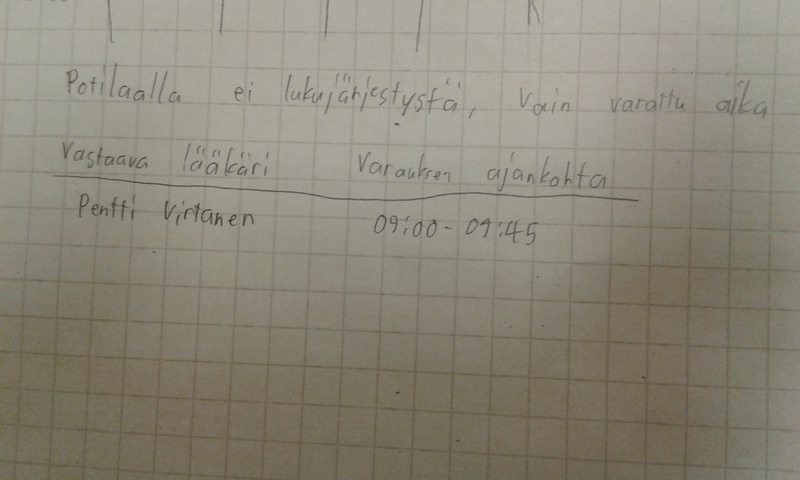 Potilaalla ei lukujärjestystä, vain varattu aika
Vastaava lääkäri Varauksen ajankohta
Pentti Virtanen 09:00 - 09:45